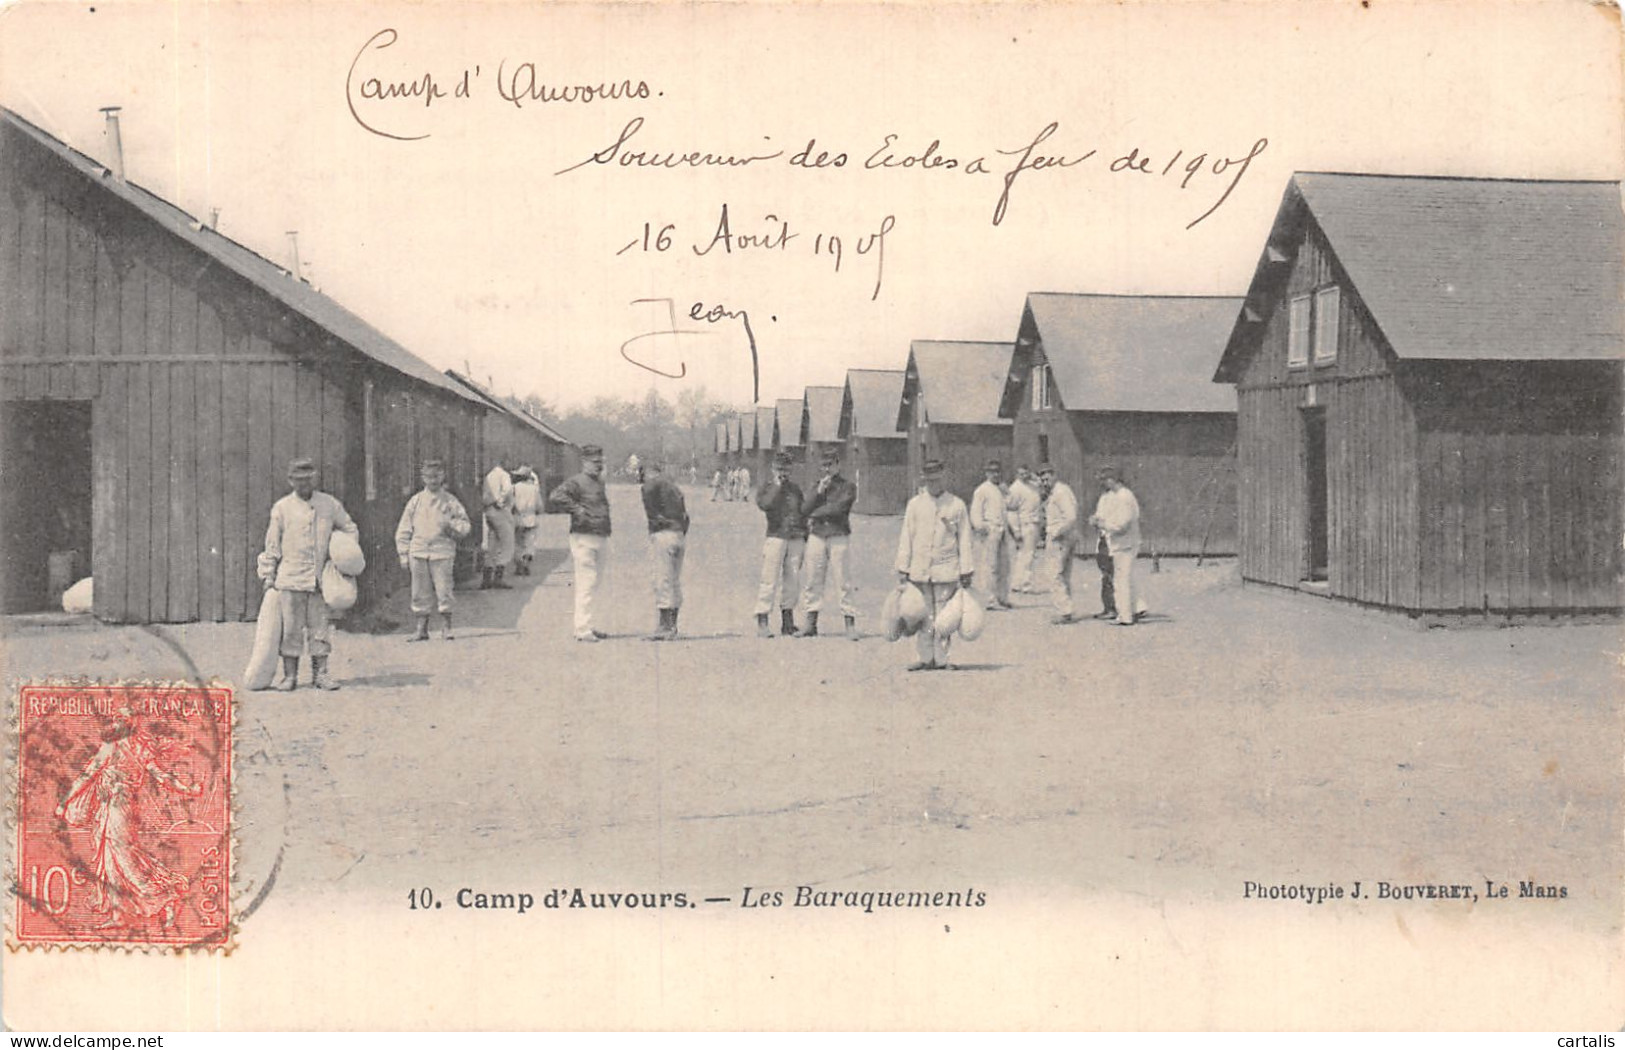 Camp d'Auvours.
Souvenir des Ecoles à feu de 1905
16 Août 1905
Jean.
RÉPUBLIQUE FRANÇAISE
10c
POSTES
10. Camp d'Auvours. — Les Baraquements
Phototypie J. BOUVERET, Le Mans
cartalis